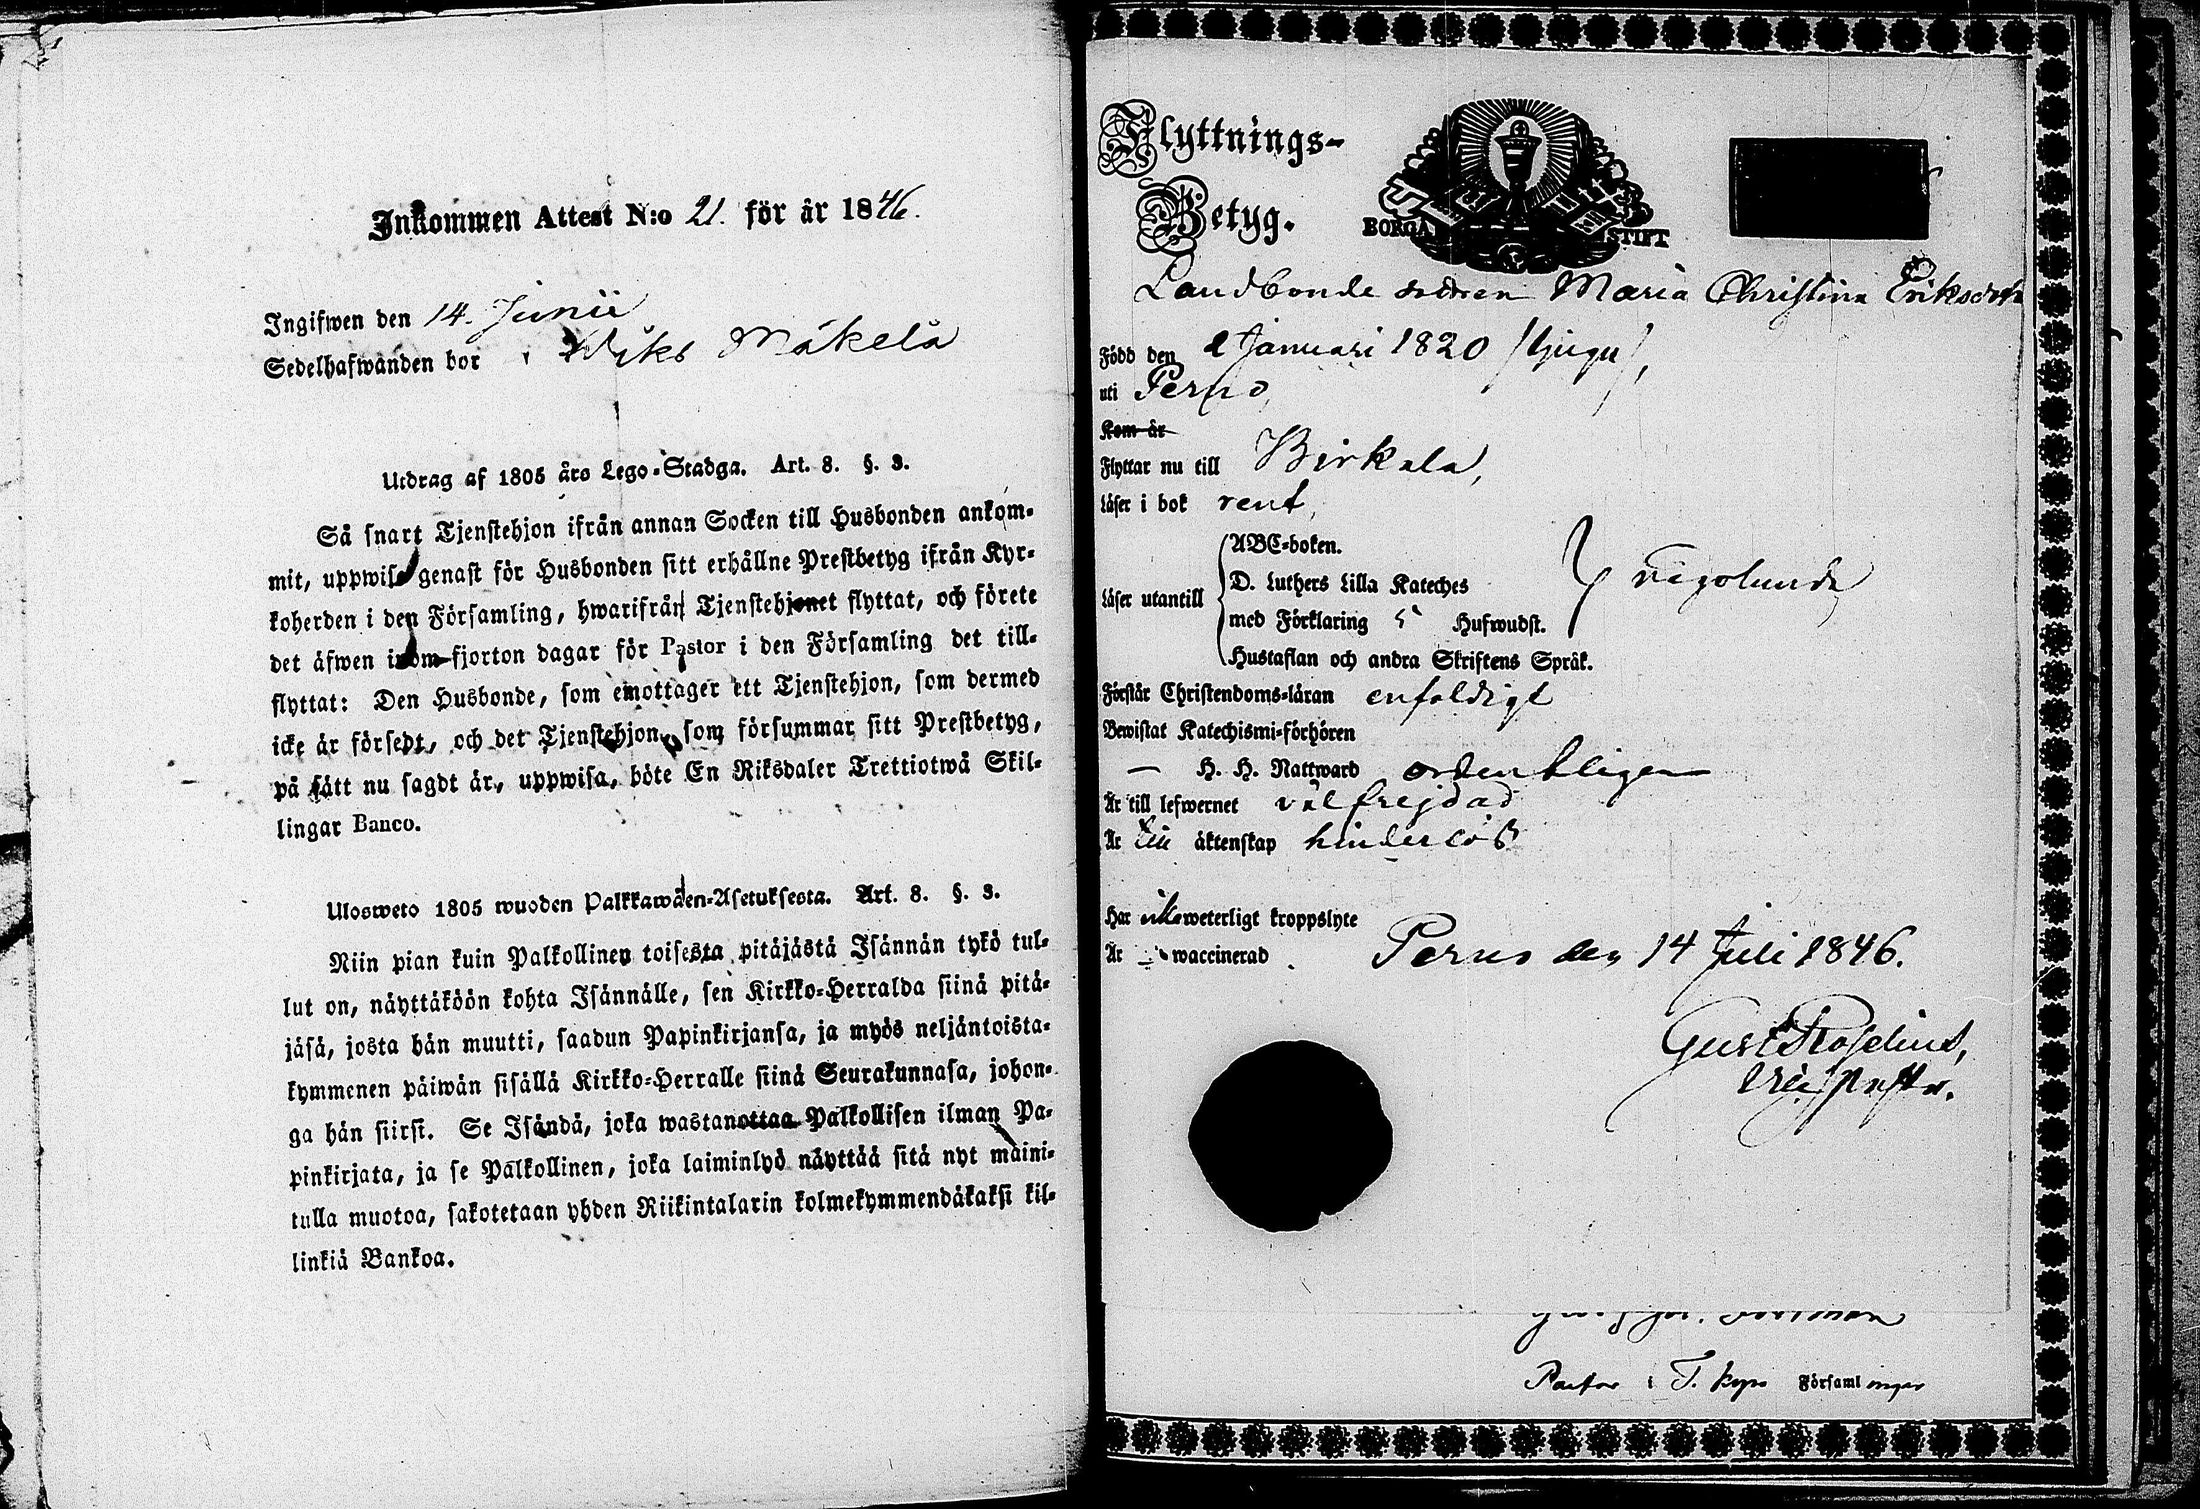 Inkommen Attest N:o 21. för år 1846.
Ingifwen den 14. Junii
Sedelhafwanden bor i Wiks Mäkelä
Utdrag af 1805 års Lego-Stadga. Art. 8. §. 3.
Så snart Tjenstehjon ifrån annan Socken till Husbonden ankom-
mit, uppwise genast för Husbonden sitt erhållne Prestbetyg ifrån Kyr-
koherden i den Församling, hwarifrån Tjenstehjonet flyttat, och förete
det äfwen inom fjorton dagar för Pastor i den Församling det till-
flyttat: Den Husbonde, som emottager ett Tjenstehjon, som dermed
icke är försedt, och det Tjenstehjon, som försummar sitt Prestbetyg,
på sätt nu sagdt är, uppwisa, böte En Riksdaler Trettiotwå Skil-
lingar Banco.
Ulosweto 1805 wuoden Palkkawäen-Asetuksesta. Art. 8. §. 3.
Niin pian kuin Palkollinen toisesta pitäjästä Isännän tykö tul-
lut on, näyttäköön kohta Isännälle, sen Kirkko-Herralda siinä pitä-
jäsä, josta hän muutti, saadun Papinkirjansa, ja myös neljäntoista-
kymmenen päiwän sisällä Kirkko-Herralle siinä Seurakunnasa, johon-
ga hän siirsi. Se Isändä, joka wastanottaa Palkollisen ilman Pa-
pinkirjata, ja se Palkollinen, joka laiminlyö näyttää sitä nyt maini-
tulla muotoa, sakotetaan yhden Riikintalarin kolmekymmendäkaksi kil-
linkiä Bankoa.
Flyttnings-
Betyg.
BORGÅ STIFT
Landbonde Maria Christina Eriksdotr
Född den 2 Januari 1820 /tjugu/,
uti Perno,
Kom år
Flyttar nu till Birkala,
Läser i bok rent,
Läser utantill
ABC-boken.
D. Luthers Lilla Kateches
med Förklaring 5 Hufwudst.
Hustaflan och andra Skriftens Språk.
någolunda
Förstår Christendoms-läran enfaldigt
Bewistat Katechismi-förhören
— H. H. Nattward ordentligen
Är till lefwernet välfrejdad
Är till äktenskap hinderlös
Har icke weterligt kroppslyte
Är waccinerad
Perno den 14 Juli 1846.
Gust Roselius,
Pastor i T. kyro Församlingar